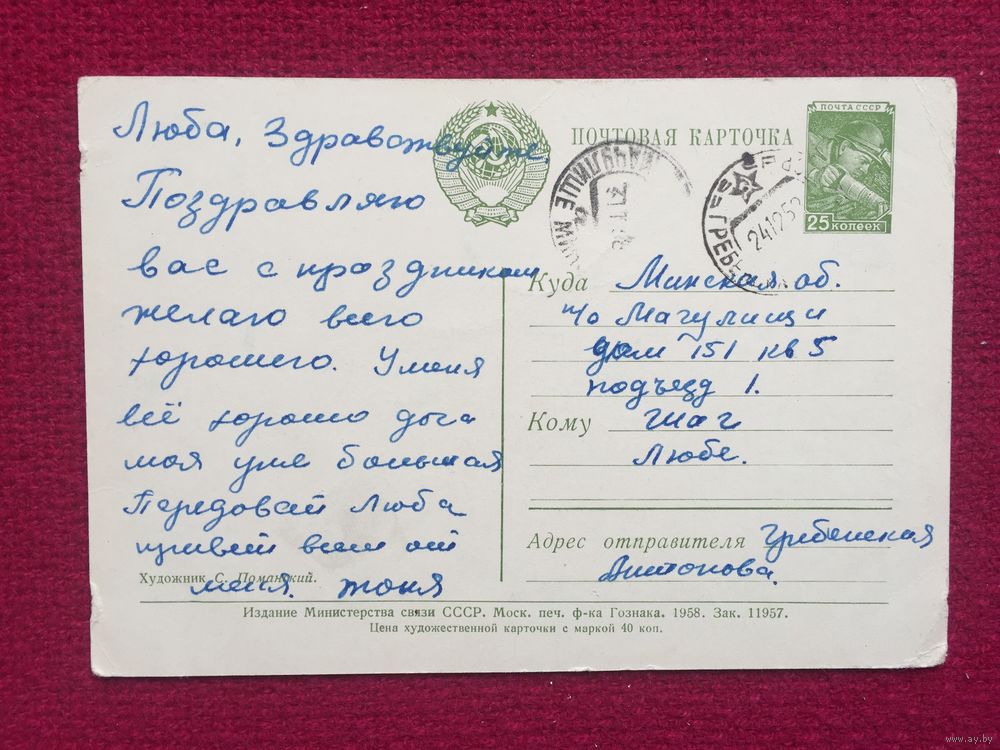 Люба, Здравствуйте.
Поздравляю
вас с праздником
желаю всего
хорошего. У меня
всё хорошо доча
моя уже большая
Передовай Люба
привет всем от
меня. Тоня
Художник С. Поманский.
ПОЧТОВАЯ КАРТОЧКА
ПОЧТА СССР
25 КОПЕЕК
МАЧУЛИЩЕ
ГРЕБЕ
241258
Куда Минская об.
п/о Мачулищи
дом 151 кв 5
подъезд 1.
Кому Шаг
Любе.
Адрес отправителя Грибенская
Антонова.
Издание Министерства связи СССР. Моск. печ. ф-ка Гознака. 1958. Зак. 11957.
Цена художественной карточки с маркой 40 коп.
www.ay.by